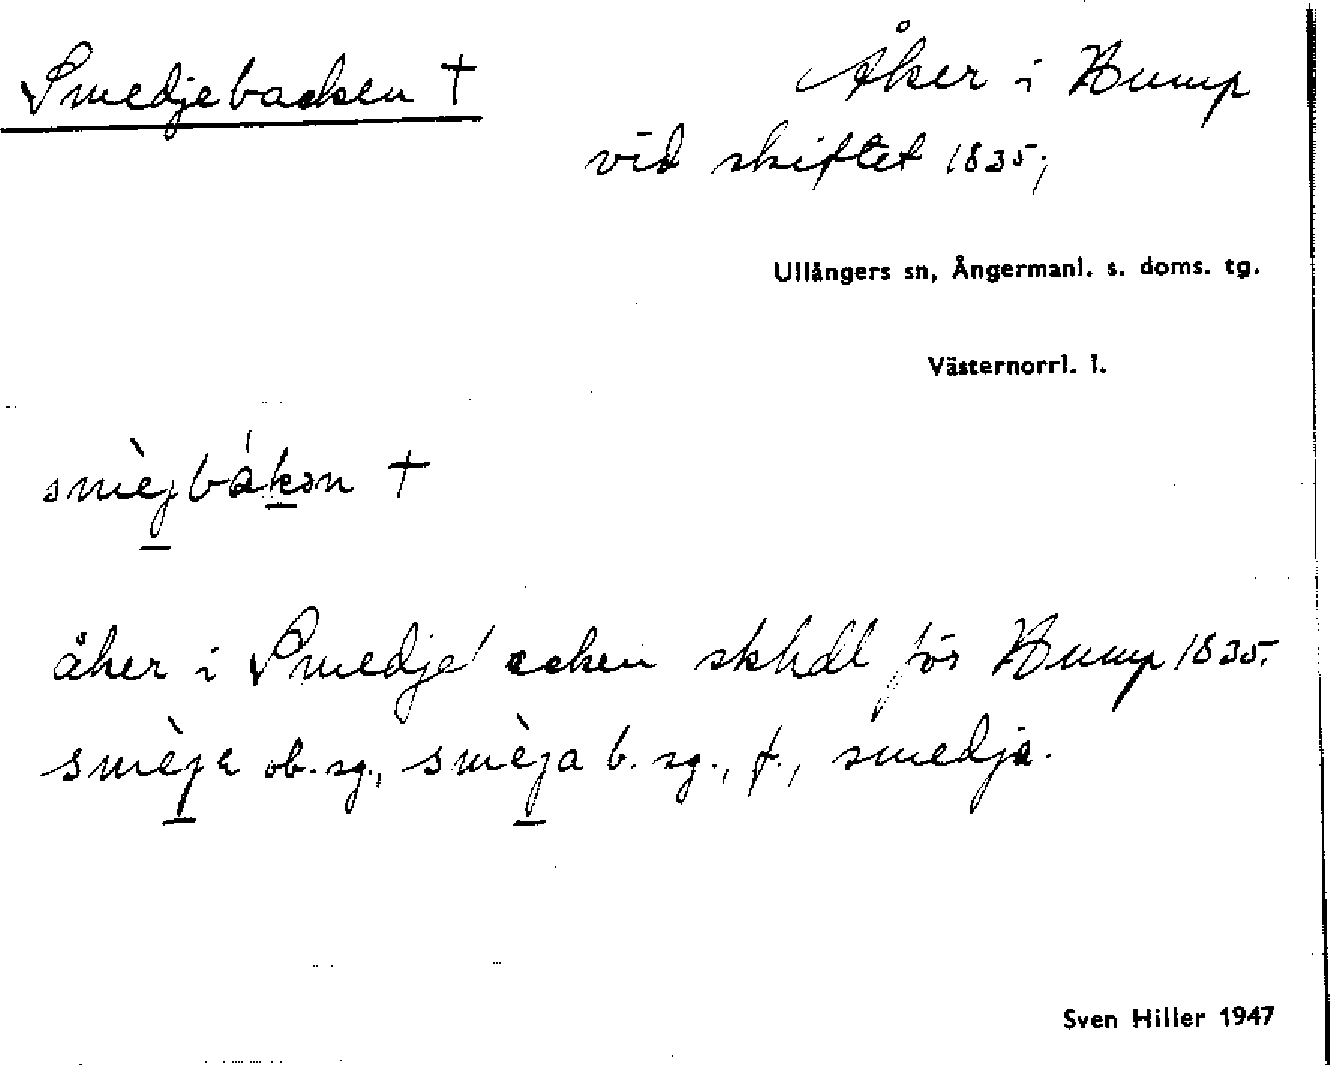 Smedjebacken †
Åker i Bump
vid skiftet 1835;
Ullångers sn, Ångermanl. s. doms. tg.
Västernorrl. l.
smèjbákən †
åker i Smedjebacken skhdl för Bump 1835.
smèja ob. sg., smèja b. sg., f., smedja.
Sven Hiller 1947